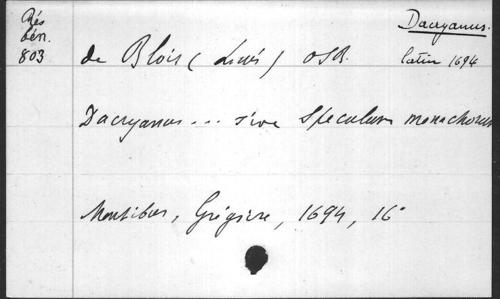 Rés
bén.
803
Dacryanus.
latin 1694
de Blois (Louis) OSB.
Dacryanus ... sive Speculum monachorum
Montibus, Grégoire, 1694, 16°